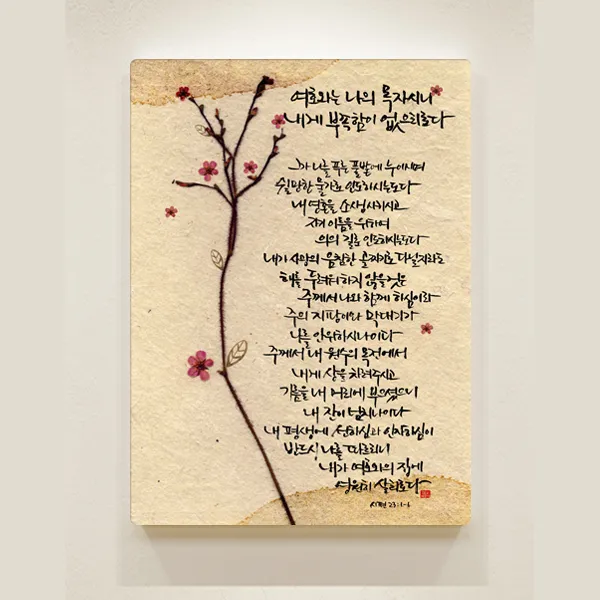 여호와는 나의 목자시니
내게 부족함이 없으리로다
그가 나를 푸른 풀밭에 누이시며
쉴만한 물가로 인도하시는도다
내 영혼을 소생시키시고
자기 이름을 위하여
의의 길로 인도하시는도다
내가 사망의 음침한 골짜기로 다닐지라도
해를 두려워하지 않을 것은
주께서 나와 함께 하심이라
주의 지팡이와 막대기가
나를 안위하시나이다
주께서 내 원수의 목전에서
내게 상을 차려주시고
기름을 내 머리에 부으셨으니
내 잔이 넘치나이다
내 평생에 선하심과 인자하심이
반드시 나를 따르리니
내가 여호와의 집에
영원히 살리로다
시편 23:1-6